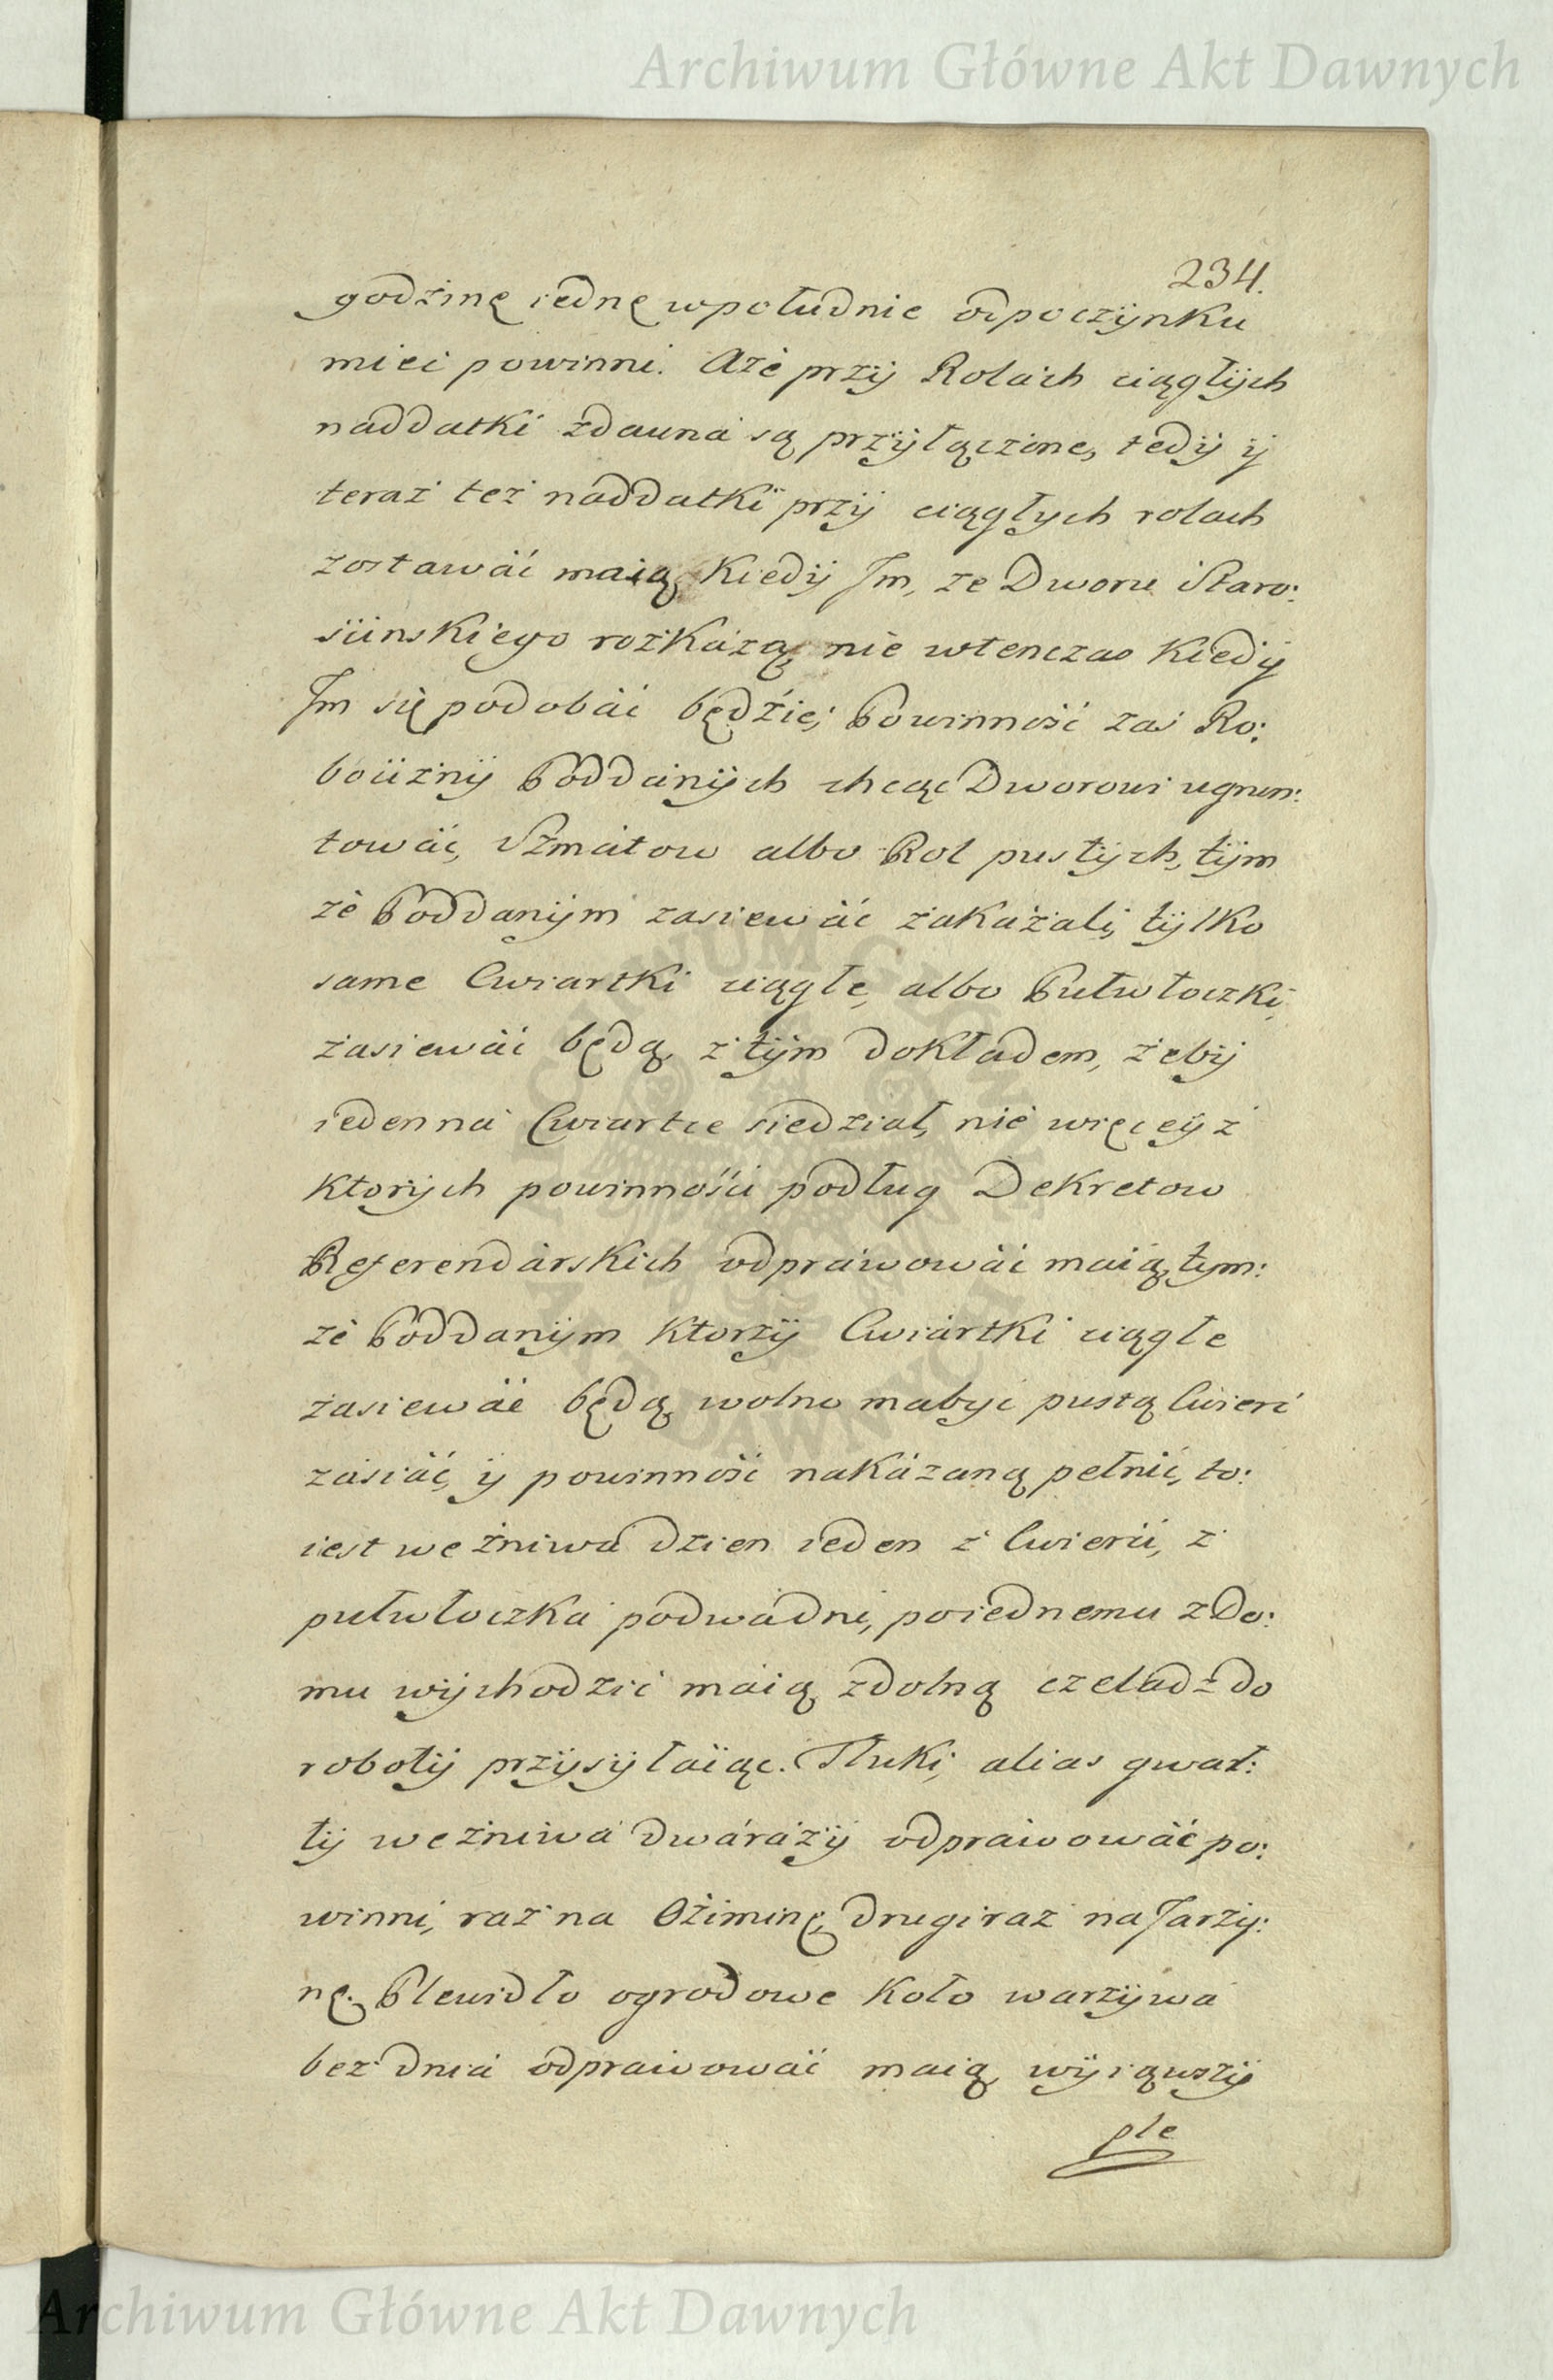 Archiwum Główne Akt Dawnych
234.
godzinę iednę wpołudnie odpoczÿnku
mieć powinni. Aże przÿ Rolach ciągłÿch
naddatki zdawna są przÿłączone, tedÿ ÿ
teraz też naddatki przÿ ciągłych rolach
zostawać maią, Kiedÿ Im, ze Dworu Staro:
ścinskiego rozkażą, nie wtenczas Kiedÿ
Im się podobać będzie; Powinność zaś Ro:
bociznÿ Poddanÿch chcąc Dworowi ugrun:
tować, Szmatow albo Rol pustÿch, tÿm
że Poddanÿm zasiewać zakazali, tÿlko
same Cwiartki ciągłe, albo Pułwłoczki,
zasiewać będą, z tÿm dokładem, żebÿ
ieden na Cwiartce siedział, nie więceÿ z
ktorÿch powinności podług Dekretow
Referendarskich odprawować maią, tym:
że Poddanÿm ktorzÿ Cwiartki ciągłe
zasiewać będą, wolno ma byc pustą Cwierć
zasiać, ÿ powinność nakazaną pełnić, to:
iest we żniwa dzien ieden z Cwierci, z
pułwłoczka podwadni, poiednemu z Do:
mu wÿchodzić maią, zdolną czeladz do
robotÿ przÿsÿłaiąc. Tłuki, alias gwał:
tÿ we żniwa dwa razÿ odprawować po:
winni, raz na Oziminę, drugi raz na Jarzy:
nę. Plewidło ogrodowe Koło warzÿwa
bez dnia odprawować maią, wÿiąwszÿ
ple
Archiwum Główne Akt Dawnych